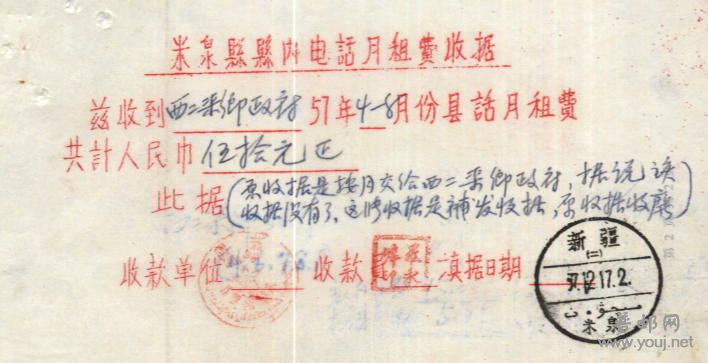 米泉縣縣内电話月租費收据
兹收到西二渠鄉政府57年4-8月份县話月租費
共計人民币伍拾元正
此据(原收据是按月交给西二渠鄉政府,据说该
收据没有了,这时收据是補发收据,原收据收廢)
收款单位 收款 填据日期
新疆
(二)
57.12.17.2.
米泉
邮网
www.youj.net